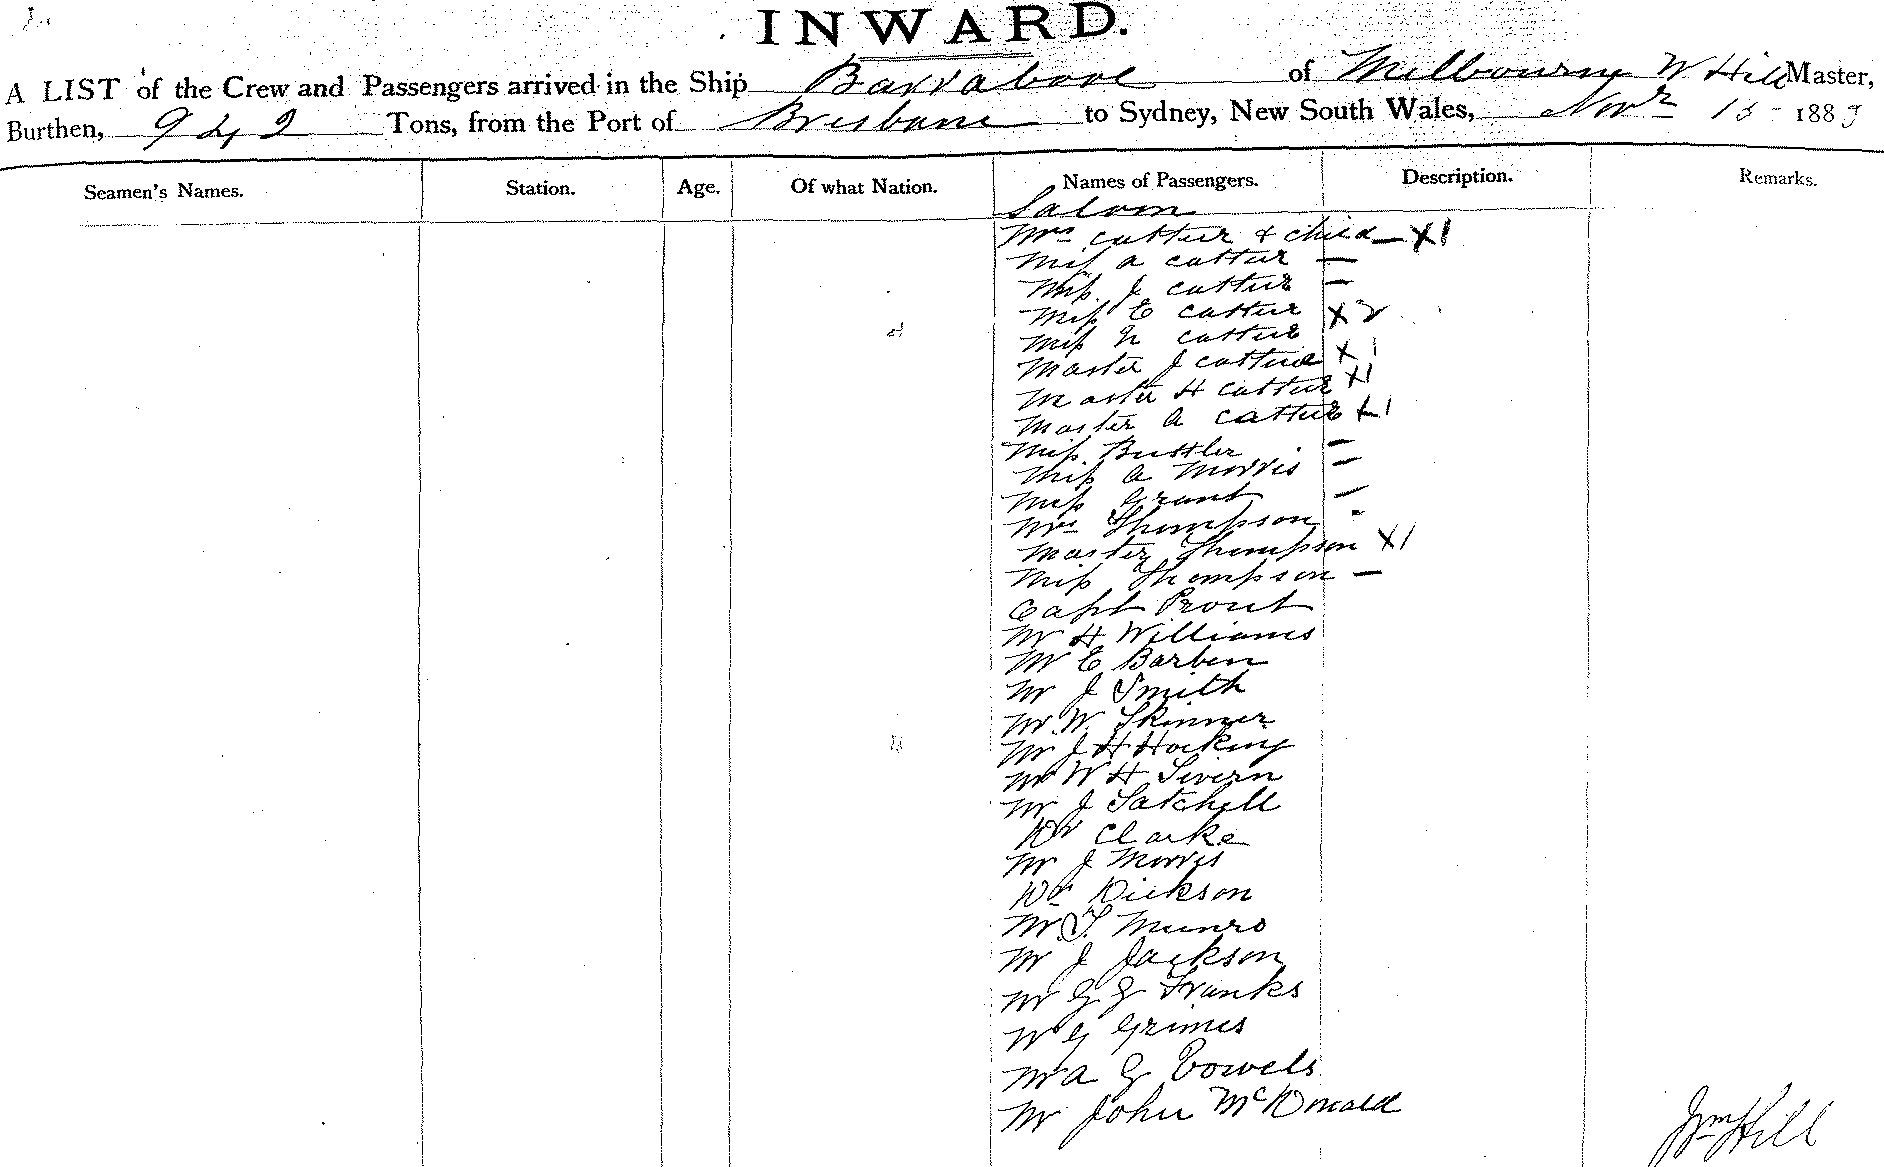 INWARD.
A LIST of the Crew and Passengers arrived in the Ship Barrabool of Melbourne W Hill Master,
Burthen, 942 Tons, from the Port of Brisbane to Sydney, New South Wales, Novr 15 1889
Seamen's Names. Station. Age. Of what Nation. Names of Passengers. Description. Remarks.
Saloon
Mrs cuttur & child — X1
Miss a cuttur —
Miss J cuttur —
Miss E cuttur X2
Miss N cuttur
Master J cuttur X1
Master H cuttur X1
Master A cuttur X1
Miss Buttler —
Miss a Morris —
Miss Grant —
Mrs Thompson -
Master Thompson X1
Miss Thompson —
Capt Prout
Mr H Williams
Mr E Barben
Mr J Smith
Mr W. Skinner
Mr J H Hocking
Mr W H Severn
Mr J Satchell
Dr Clarke
Mr J Morris
Dr Dickson
Mr T. Munro
Mr J Jackson
Mr G G Franks
Mr G Grimes
Mr A G Vowels
Mr John McDonald
Wm Hill